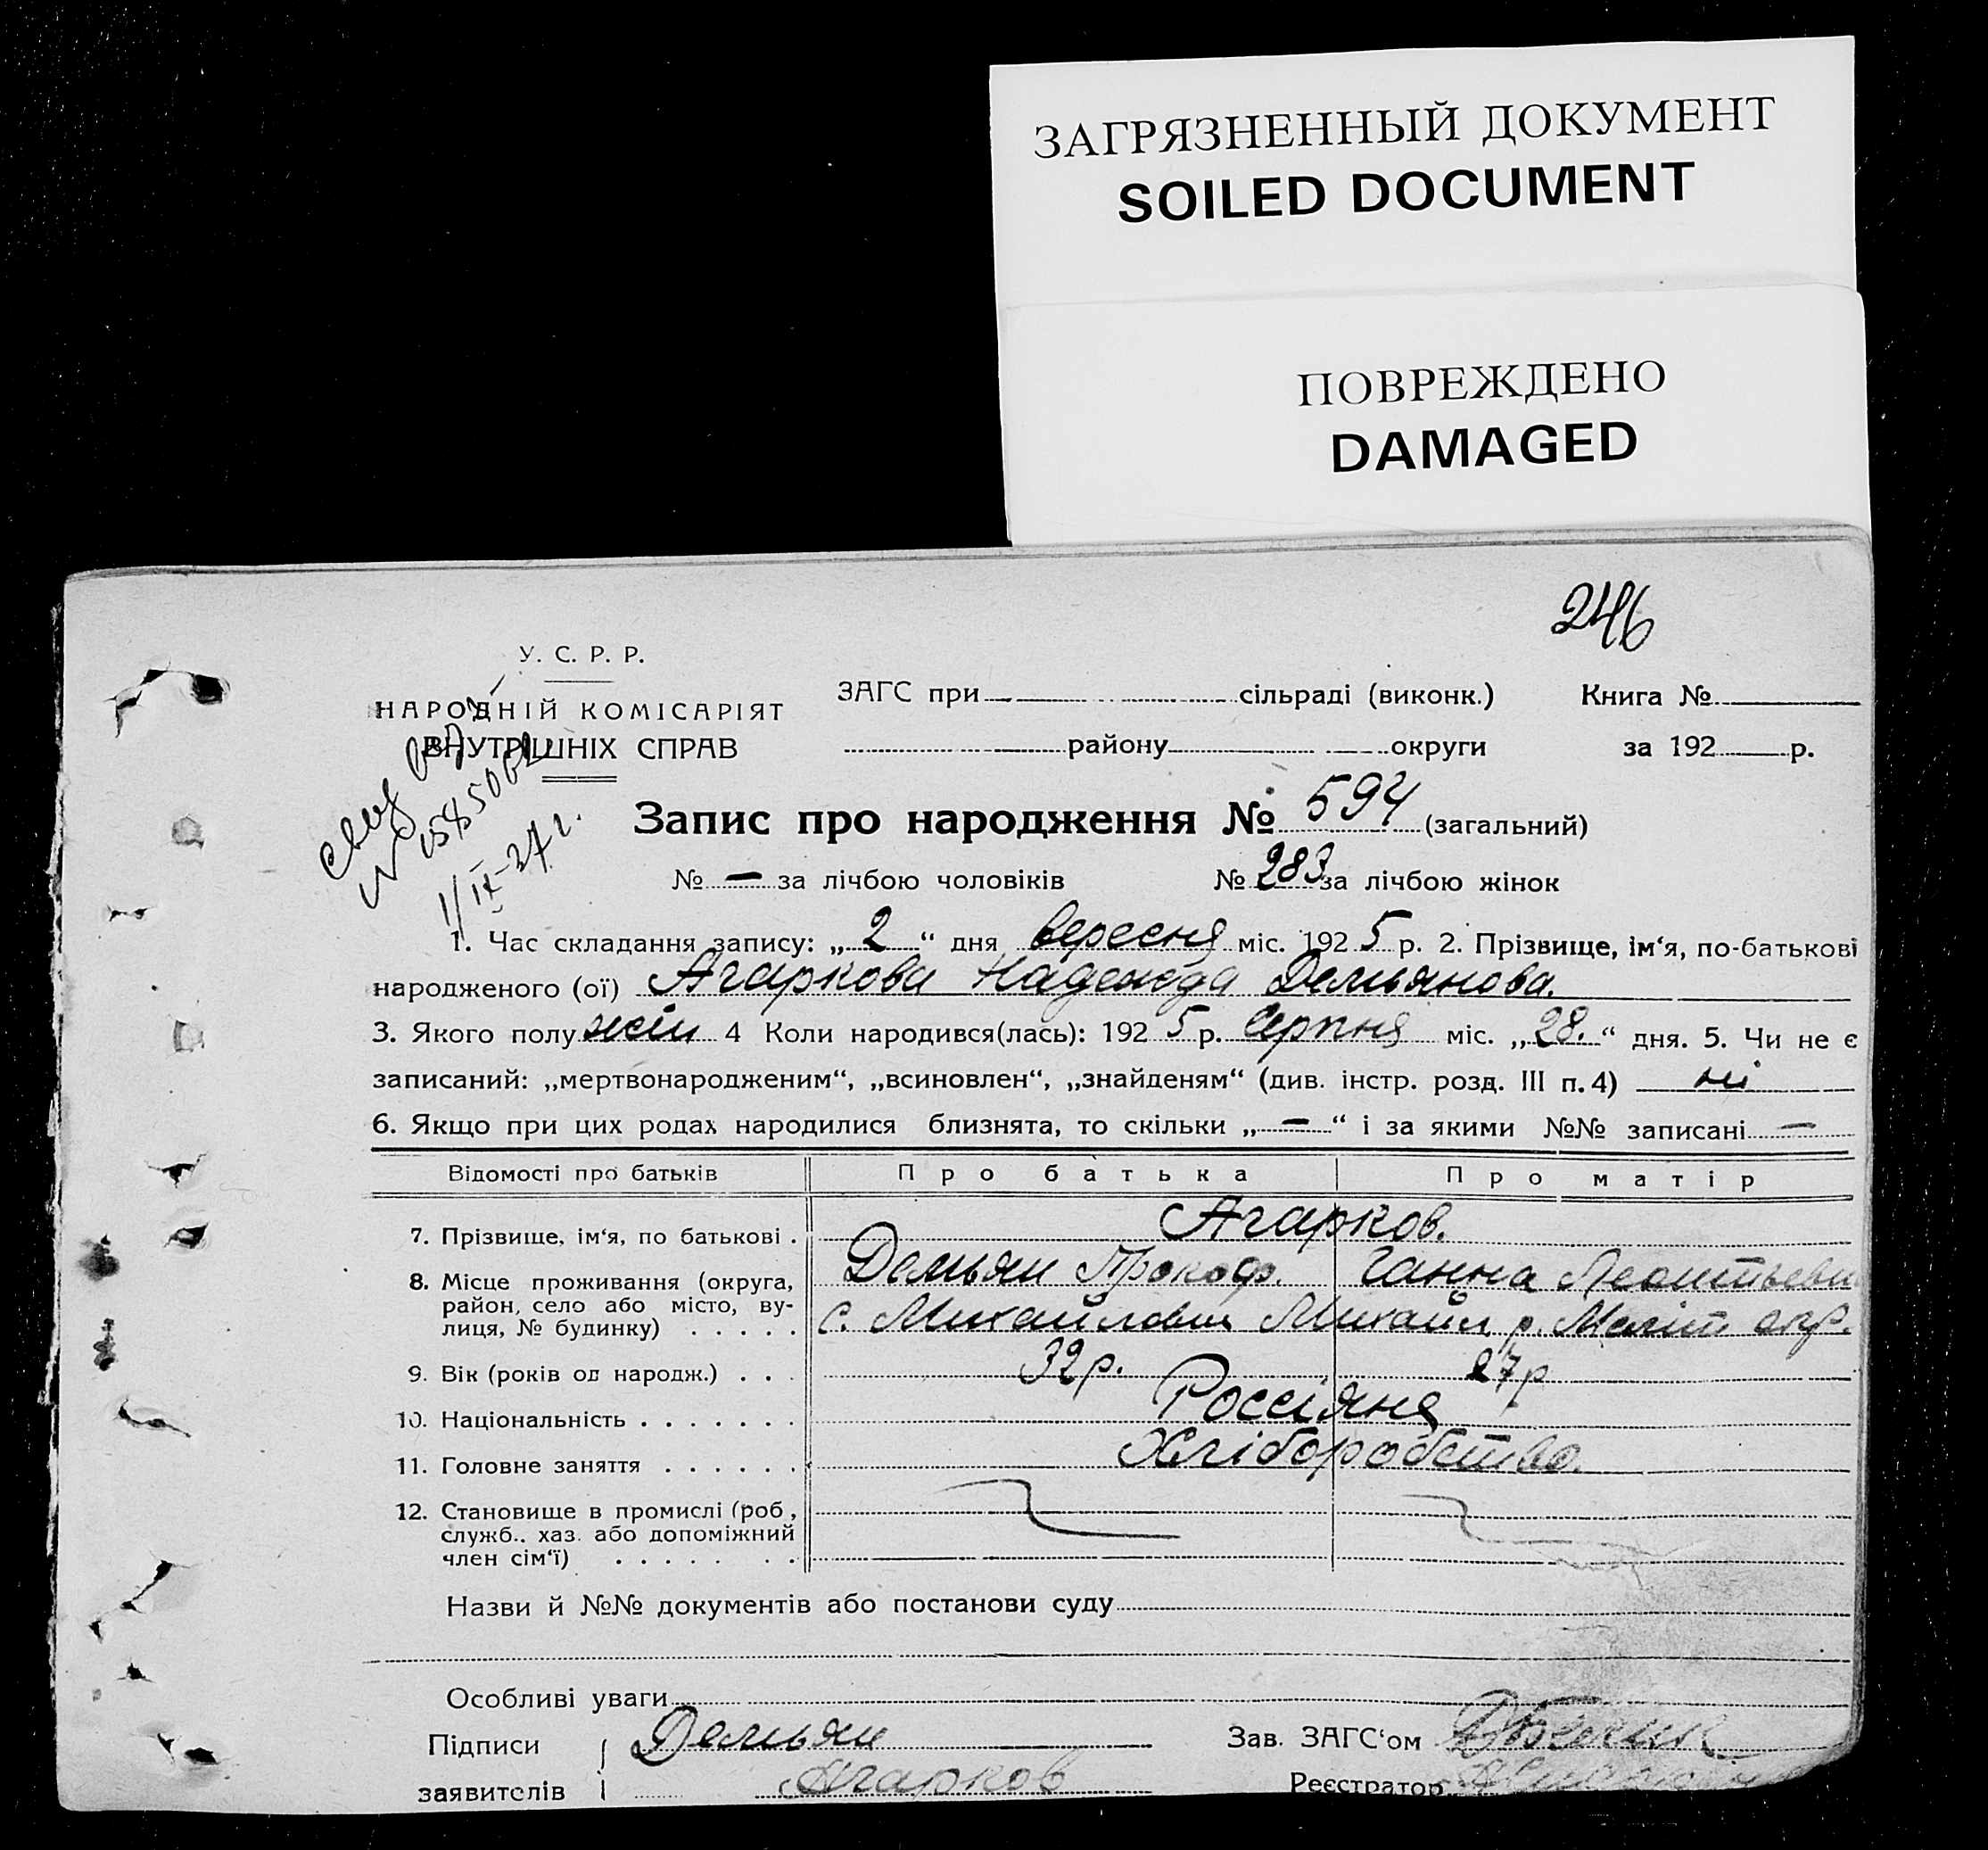 ЗАГРЯЗНЕННЫЙ ДОКУМЕНТ
SOILED DOCUMENT
ПОВРЕЖДЕНО
DAMAGED
246
У. С. Р. Р.
НАРОДНІЙ КОМІСАРІЯТ
ВНУТРІШНІХ СПРАВ
ЗАГС при сільраді (виконк.) Книга №
району округи за 192 р.
Запис про народження № 594 (загальний)
№ — за лічбою чоловіків № 283 за лічбою жінок
1. Час складання запису: „ 2 “ дня вересня міс. 192 5 р. 2. Прізвище, ім‘я, по-батькові
народженого (ої) Агаркова Надежда Демьянова.
3. Якого полу жін 4 Коли народився(лась): 192 5 р. Серпня міс. „ 28. “ дня. 5. Чи не є
записаний: „мертвонародженим“, „всиновлен“, „знайденям“ (див. інстр. розд. III п. 4) ні
6. Якщо при цих родах народилися близнята, то скільки „ — “ і за якими №№ записані —
Відомості про батьків Про батька Про матір
7. Прізвище, ім‘я, по батькові . Агарков.
Демьян Прокоф. Ганна Леонтьевн
8. Місце проживання (округа,
район, село або місто, ву-
лиця, № будинку) . . . . . с. Михайловка Михайл. р. Меліт. окр.
9. Вік (років од народж.) . . . 32 р. 27 р
10. Національність . . . . . . . Россіяне
11. Головне заняття . . . . . . Хліборобство.
12. Становище в промислі (роб.,
служб., хаз. або допоміжний
член сім‘ї) . . . . . . .
Назви й №№ документів або постанови суду
Особливі уваги
Підписи Демьян Зав. ЗАГС‘ом
заявителів Агарков Реєстратор